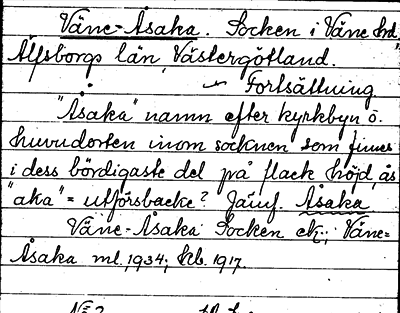 Väne-Åsaka. Socken i Väne hd.
Älfsborgs län, Västergötland.
Fortsättning
"Åsaka" namn efter kyrkbyn o.
huvudorten inom socknen som finnes
i dess bördigaste del på flack höjd, ås
"aka" = utförsbacke? Jämf. Åsaka
Väne-Åsaka Socken ck.; Väne-
Åsaka ml. 1934; kb. 1917.